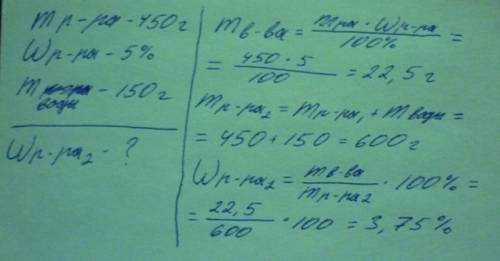 mр-ра-450г
Wр-ра-5%
m воды-150г
Wр-ра2-?
mв-ва = mр-ра · Wр-ра / 100% =
= 450 · 5 / 100 = 22,5г
mр-ра2 = mр-ра1 + mводы =
= 450 + 150 = 600г
Wр-ра2 = mв-ва / mр-ра2 · 100% =
= 22,5 / 600 · 100 = 3,75%